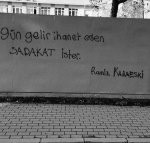 gün gelir ihanet eden
SADAKAT ister.
Ramiz KARAESKİ